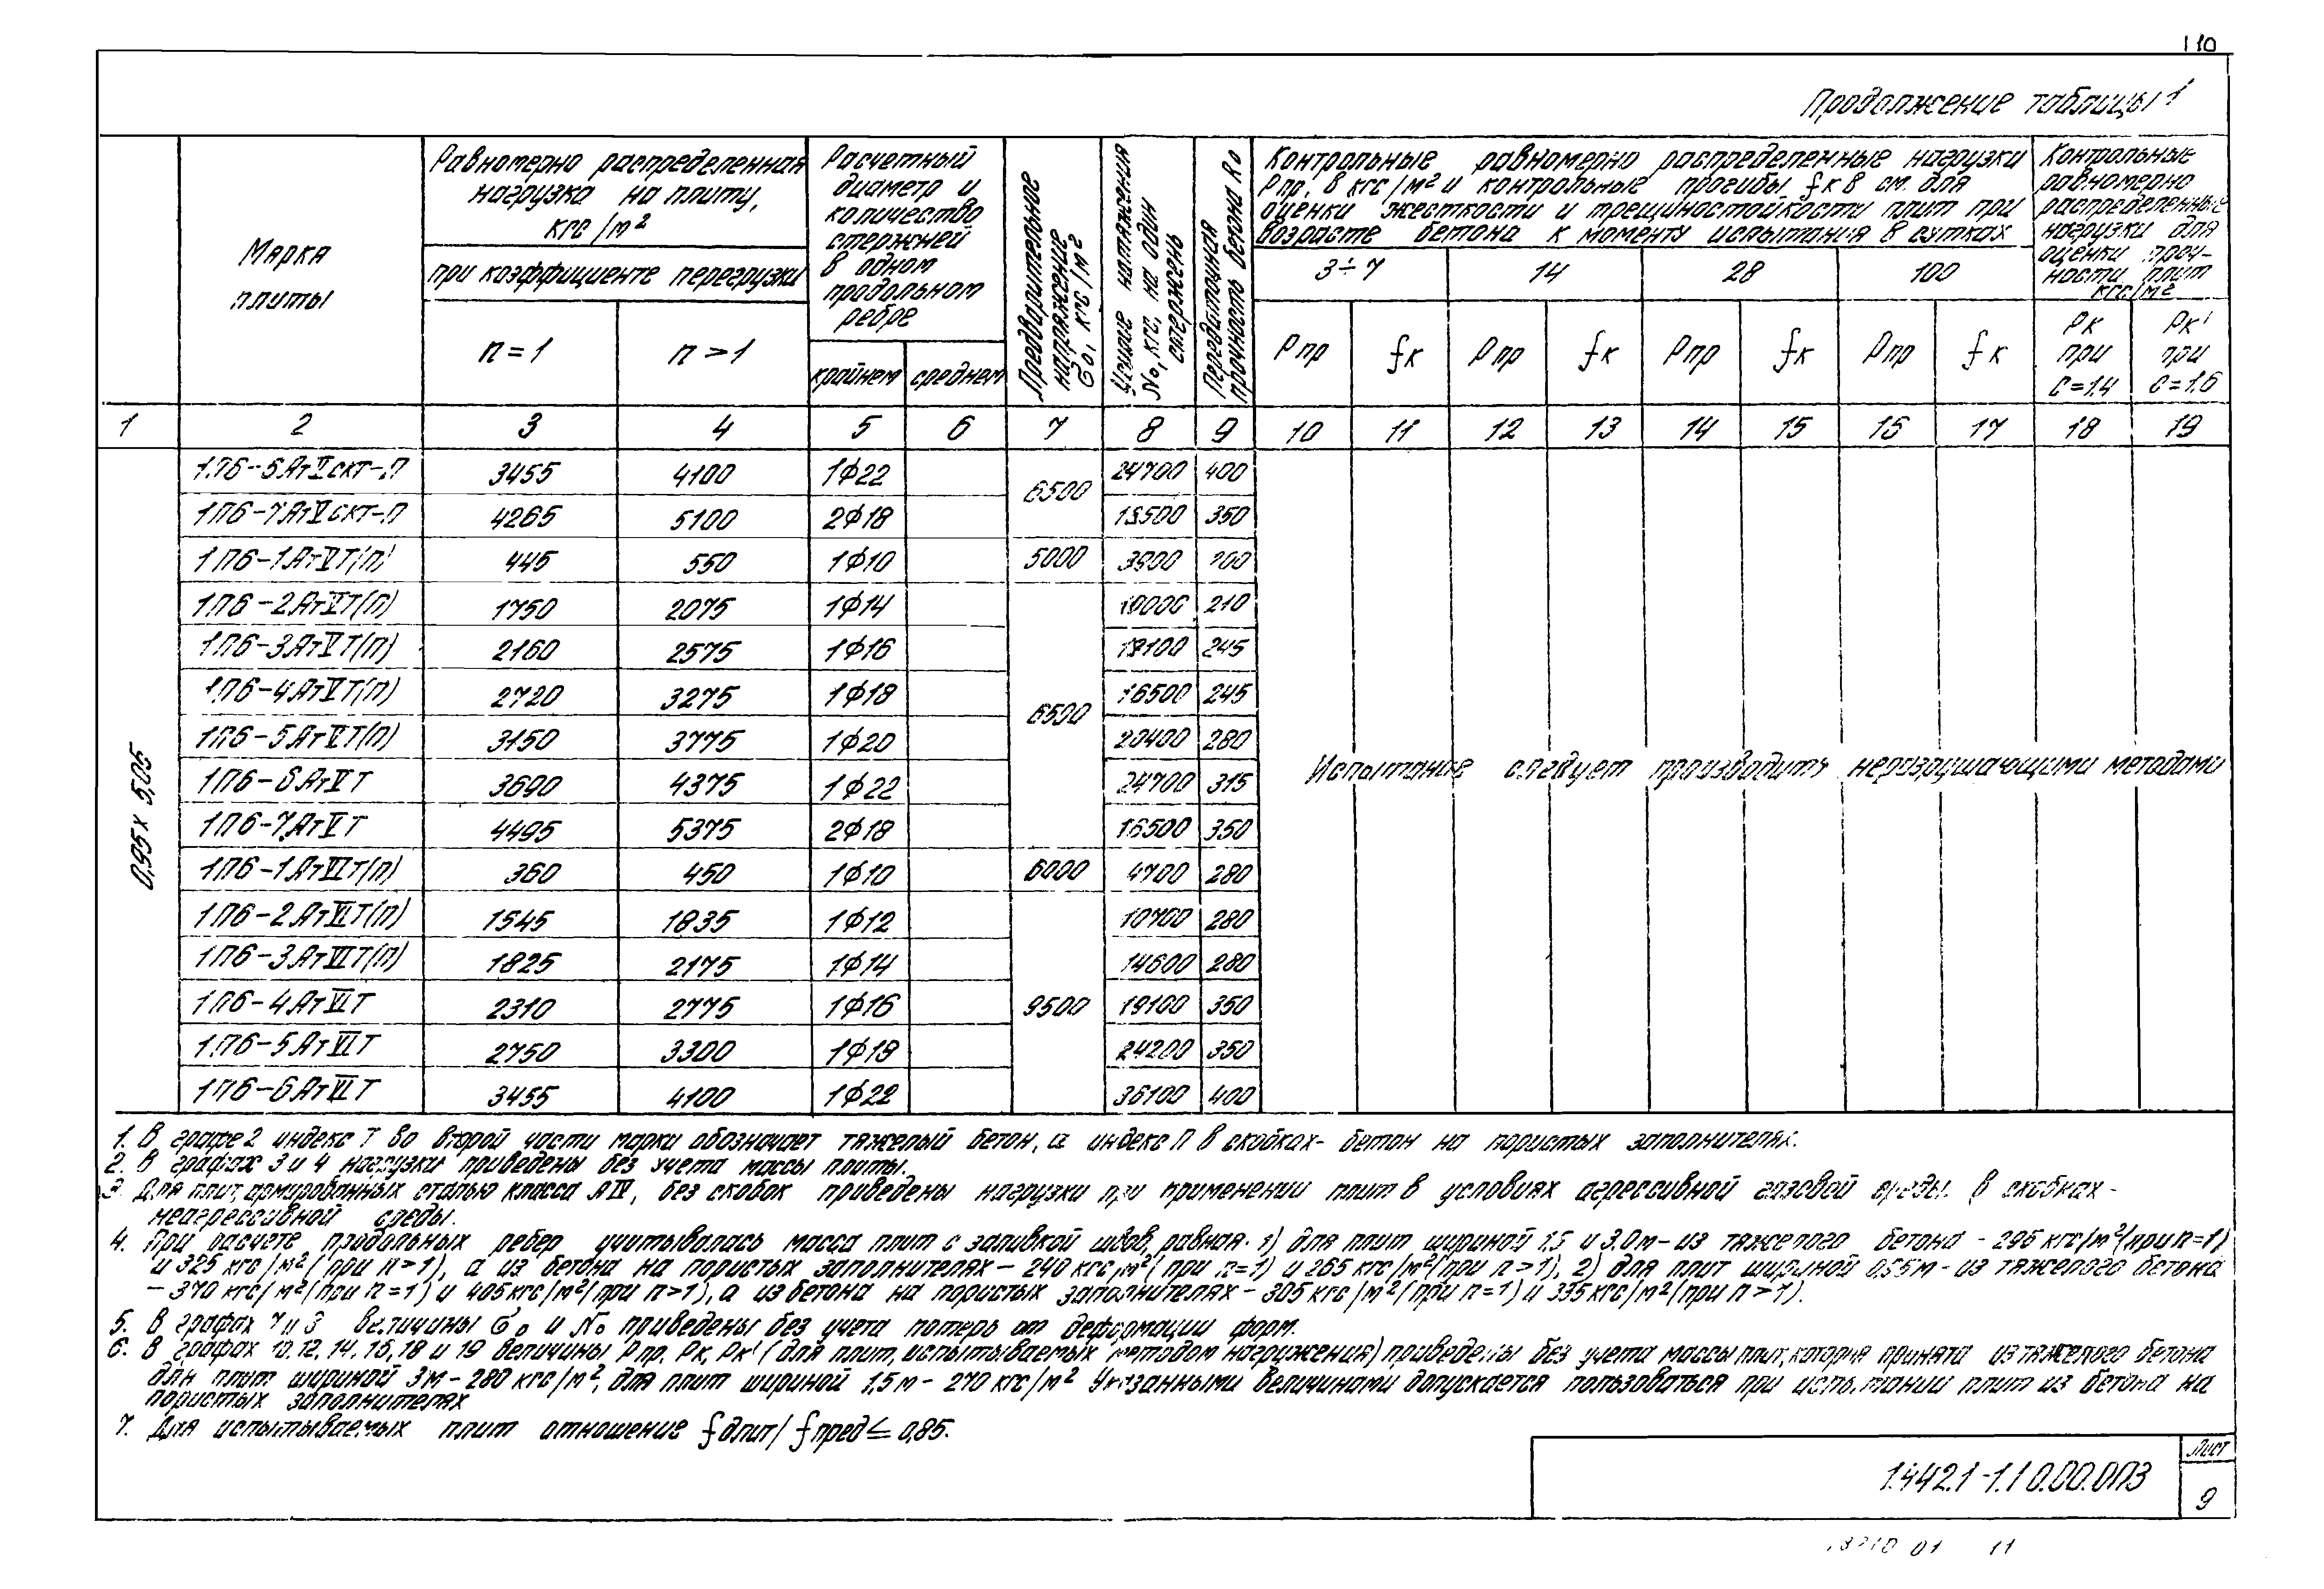 110
Продолжение таблицы 1
Марка плиты
Равномерно распределенная нагрузка на плиту, кгс/м²
при коэффициенте перегрузки
n=1
n>1
Расчетный диаметр и количество стержней в одном продольном ребре
крайнем
среднем
Предварительное напряжение σо, кгс/м²
Усилие натяжения Nо, кгс, на один стержень
Передаточная прочность бетона Rо
Контрольные равномерно распределенные нагрузки
Рпр, в кгс/м² и контрольные прогибы fк в см. для
оценки жесткости и трещиностойкости плит при
возрасте бетона к моменту испытания в сутках
3÷7 14 28 100
Рпр fк Рпр fк Рпр fк Рпр fк
Контрольные равномерно распределенные нагрузки для оценки прочности плит кгс/м²
Рк при С=1.4
Рк' при С=1.6
1 2 3 4 5 6 7 8 9 10 11 12 13 14 15 16 17 18 19
0,95 х 5,05
3455 4100 1ф22 6500 24700 400
1П6-7АтVскт-П 4265 5100 2ф18 350
1П6-1АтVТ(п) 445 550 1ф10 5000 3900
1П6-2АтVТ(п) 1750 2075 1ф14 10000 210
1П6-3АтVТ(п) 2160 2575 1ф16 245
1П6-4АтVТ(п) 2720 3275 1ф18 6500 16500 245
1П6-5АтVТ(п) 3150 3775 1ф20 20400 280
1П6-6АтVТ 3690 4375 1ф22 24700 315
1П6-7АтVТ 4495 5375 2ф18 16500 350
1П6-1АтVIТ(п) 360 450 1ф10 6000 4700 280
1П6-2АтVIТ(п) 1545 1835 1ф12 10700 280
1П6-3АтVIТ(п) 1825 2175 1ф14 14600 280
1П6-4АтVIТ 2310 2775 1ф16 9500 19100 350
1П6-5АтVIТ 2750 3300 1ф18 24200 350
1П6-6АтVIТ 3455 4100 1ф22 36100 400
Испытание следует производить неразрушающими методами
1. В графе 2 индекс Т во второй части марки обозначает тяжелый бетон, а индекс П в скобках- бетон на пористых заполнителях.
2. В графах 3 и 4 нагрузки приведены без учета массы плиты.
3. Для плит, армированных сталью класса АIV, без скобок приведены нагрузки при применении плит в условиях агрессивной газовой среды. В скобках -
неагрессивной среды.
4. При расчете продольных ребер учитывалась масса плит с заливкой швов, равная: 1) для плит шириной 1,5 и 3.0м- из тяжелого бетона - 295 кгс/м²(при n=1)
и 325 кгс/м²(при n>1), а из бетона на пористых заполнителях- 240 кгс/м²(при n=1) и 265 кгс/м²(при n>1), 2) для плит шириной - из тяжелого бетона
- 370 кгс/м²(при n=1) и 405кгс/м²(при n>1), а из бетона на пористых заполнителях- 305кгс/м²(при n=1) и 335кгс/м²(при n>1).
5. В графах 7 и 8 величины σо и Nо приведены без учета потерь от деформации форм.
6. В графах 10, 12, 14, 16, 18 и 19 величины Рпр, Рк, Рк' (для плит, испытываемых методом нагружения) приведены без учета массы плит, которая принята из тяжелого бетона
для плит шириной 3м- 280 кгс/м², для плит шириной 1,5м- 270 кгс/м² Указанными величинами допускается пользоваться при испытании плит из бетона на
пористых заполнителях
7. Для испытываемых плит отношение fдлит/fпред ≤ 0,85.
1.442.1-1.1 0.00.0ПЗ
Лист
9
01 11